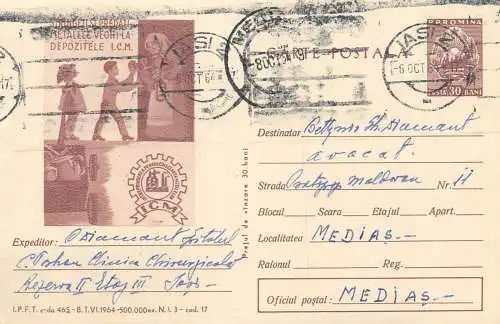 STRÎNGEȚI ȘI PREDAȚI
METALELE VECHI LA
DEPOZITELE I.C.M.
I.C.M.
IAȘI
-6 OCT 64
MEDIAȘ
-8 OCT 64
CARTE POSTALĂ
IAȘI
-6 OCT 64
R.P. ROMINA
POSTA 30 BANI
Prețul de vînzare 30 bani
Destinatar Diamant
avocat
Strada Moldovan Nr. 11
Blocul Scara Etajul Apart.
Localitatea MEDIAȘ.-
Raionul Reg.
Oficiul poștal: MEDIAȘ.-
Expeditor: Diamant Spitalul
Clinica Chirurgicală
Rezerva II Etaj III Iași
I. P. F. T. c-da 465 - B. T. VI. 1964 - 500.000 ex. N. I. 3 - cod. 17